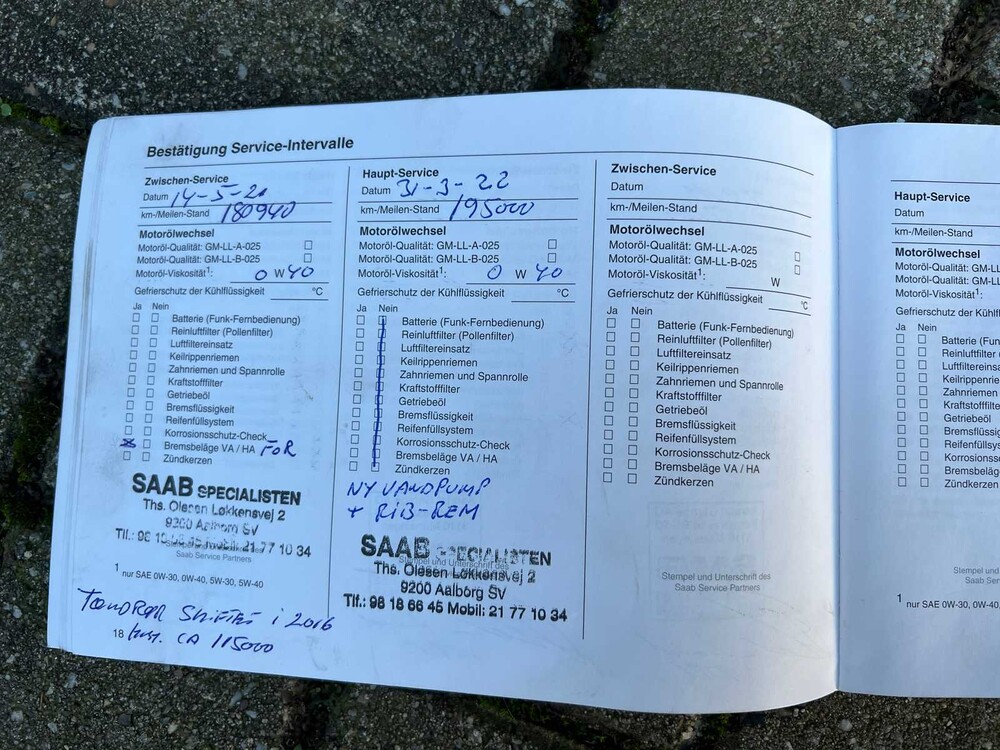 Bestätigung Service-Intervalle
Zwischen-Service
Datum 14-5-20
km-/Meilen-Stand 180940
Motorölwechsel
Motoröl-Qualität: GM-LL-A-025
Motoröl-Qualität: GM-LL-B-025
Motoröl-Viskosität1: 0 W 40
Gefrierschutz der Kühlflüssigkeit °C
Ja Nein
Batterie (Funk-Fernbedienung)
Reinluftfilter (Pollenfilter)
Luftfiltereinsatz
Keilrippenriemen
Zahnriemen und Spannrolle
Kraftstofffilter
Getriebeöl
Bremsflüssigkeit
Reifenfüllsystem
Korrosionsschutz-Check
Bremsbeläge VA / HA FOR
Zündkerzen
SAAB SPECIALISTEN
Ths. Olesen Løkkensvej 2
9200 Aalborg SV
Tlf.: 98 18 66 45 Mobil: 21 77 10 34
Saab Service Partners
1 nur SAE 0W-30, 0W-40, 5W-30, 5W-40
TANDREM SKIFTET i 2016
18 CA 115000
Haupt-Service
Datum 31-3-22
km-/Meilen-Stand 195000
Motorölwechsel
Motoröl-Qualität: GM-LL-A-025
Motoröl-Qualität: GM-LL-B-025
Motoröl-Viskosität1: 0 W 40
Gefrierschutz der Kühlflüssigkeit °C
Ja Nein
Batterie (Funk-Fernbedienung)
Reinluftfilter (Pollenfilter)
Luftfiltereinsatz
Keilrippenriemen
Zahnriemen und Spannrolle
Kraftstofffilter
Getriebeöl
Bremsflüssigkeit
Reifenfüllsystem
Korrosionsschutz-Check
Bremsbeläge VA / HA
Zündkerzen
NY VANDPUMP
+ RIB-REM
SAAB SPECIALISTEN
Stempel und Unterschrift des
Ths. Olesen Løkkensvej 2
9200 Aalborg SV
Tlf.: 98 18 66 45 Mobil: 21 77 10 34
Zwischen-Service
Datum
km-/Meilen-Stand
Motorölwechsel
Motoröl-Qualität: GM-LL-A-025
Motoröl-Qualität: GM-LL-B-025
Motoröl-Viskosität1:
W
Gefrierschutz der Kühlflüssigkeit °C
Ja Nein
Batterie (Funk-Fernbedienung)
Reinluftfilter (Pollenfilter)
Luftfiltereinsatz
Keilrippenriemen
Zahnriemen und Spannrolle
Kraftstofffilter
Getriebeöl
Bremsflüssigkeit
Reifenfüllsystem
Korrosionsschutz-Check
Bremsbeläge VA / HA
Zündkerzen
Stempel und Unterschrift des
Saab Service Partners
Haupt-Service
Datum
km-/Meilen-Stand
Motorölwechsel
Motoröl-Qualität: GM-LL
Motoröl-Qualität: GM-LL
Motoröl-Viskosität1:
Gefrierschutz der Kühlfl
Ja Nein
Batterie (Fun
Reinluftfilter (
Luftfiltereinsa
Keilrippenrie
Zahnriemen
Kraftstofffilte
Getriebeöl
Bremsflüssig
Reifenfüllsys
Korrosionss
Bremsbeläg
Zündkerzen
Stempel und
Saab Ser
1 nur SAE 0W-30, 0W-4